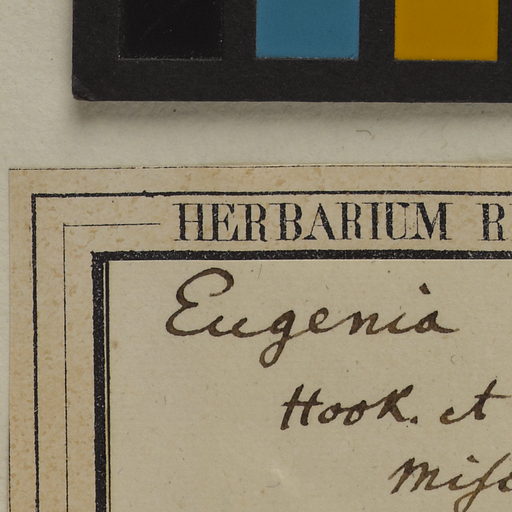 HERBARIUM R
Eugenia
Hook. et
Misc